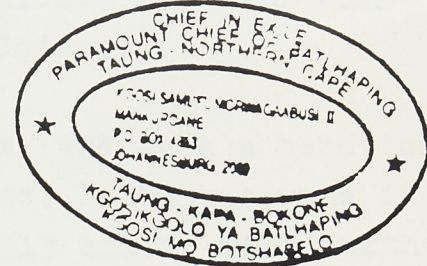 CHIEF IN EXILE
PARAMOUNT CHIEF OF BATLHAPING
TAUNG - NORTHERN CAPE
KGOSI SAMUEL II
MANKUROANE
P.O BOX
JOHANNESBURG 2000
TAUNG - KAPA - BOKONE
KGOSIKGOLO YA BATLHAPING
KGOSI MO BOTSHABELO